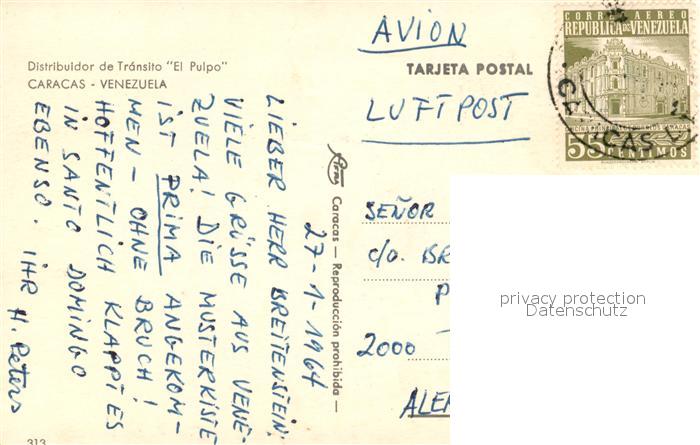 Distribuidor de Tránsito "El Pulpo"
CARACAS - VENEZUELA
AVION
TARJETA POSTAL
LUFTPOST
CORREO AEREO
REPUBLICA DE VENEZUELA
55 CENTIMOS
CARACAS
27-1-1964
LIEBER HERR BREITENSTEIN!
VIELE GRÜSSE AUS VENE-
ZUELA! DIE MUSTERKISTE
IST PRIMA ANGEKOM-
MEN - OHNE BRUCH!
HOFFENTLICH KLAPPT ES
IN SANTO DOMINGO
EBENSO. IHR H. Peters
Caracas — Reproducción prohibida —
SEÑOR
c/o. BR
P
2000
ALEM
privacy protection
Datenschutz
313